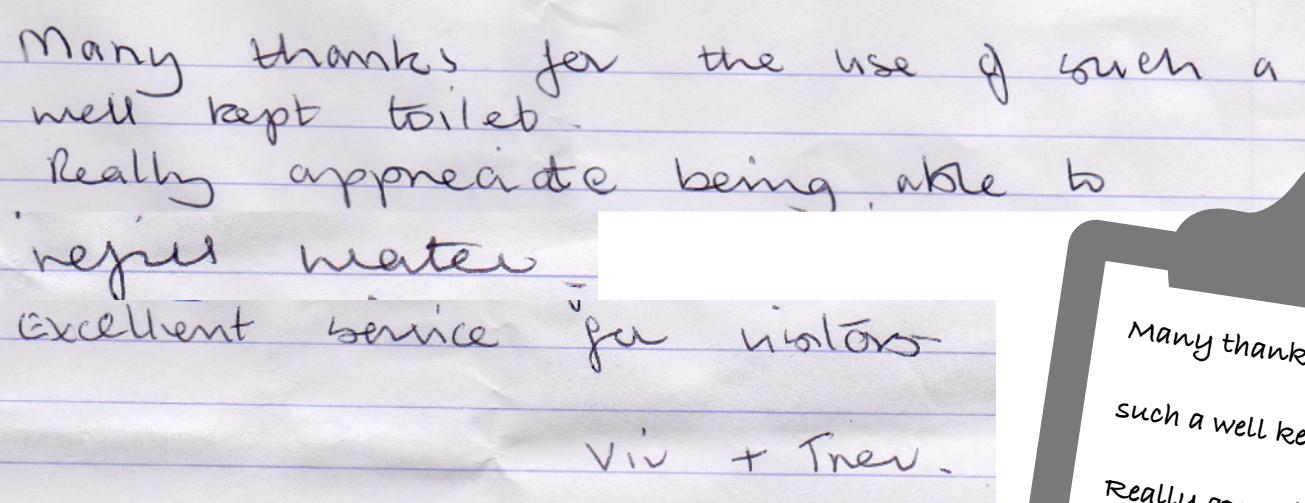 Many thanks for the use of such a
well kept toilet.
Really appreciate being able to
refill water
Excellent service for visitors
Viv + Trev.
Many thank
such a well ke
Really